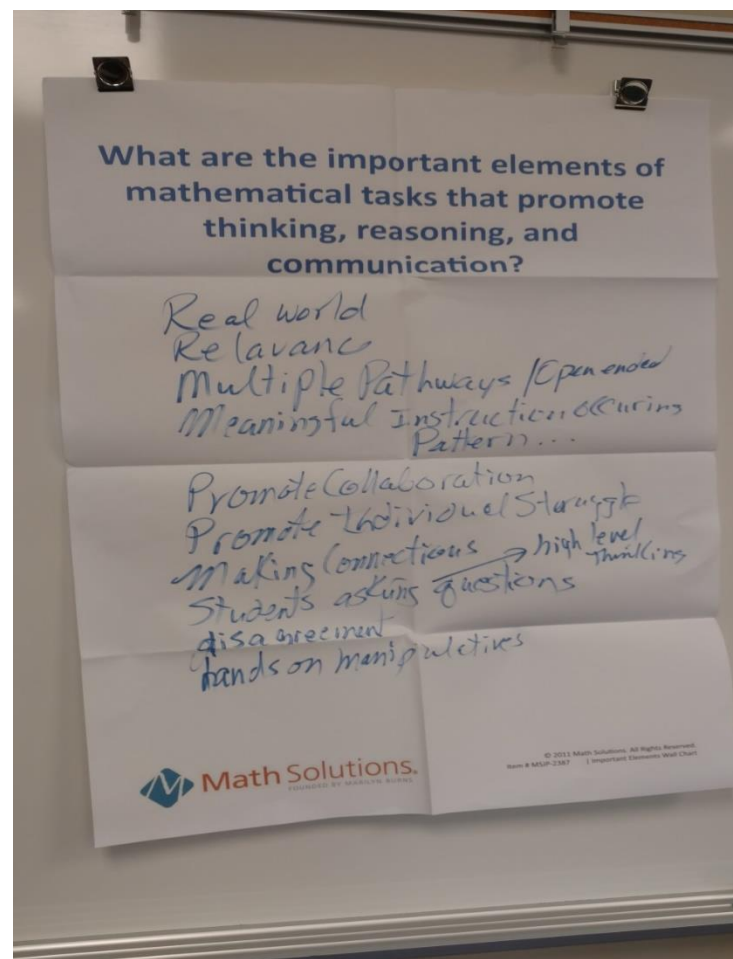 What are the important elements of
mathematical tasks that promote
thinking, reasoning, and
communication?
Real world
Relavanc
Multiple Pathways / Open ended
Meaningful Instruction occuring
Pattern...
Promote Collaboration
Promote Individual Struggle
Making Connections
high level
Thinking
Students asking questions
disagreement
hands on manipulatives
Math Solutions.
FOUNDED BY MARILYN BURNS
© 2011 Math Solutions. All Rights Reserved.
Item # MSJP-2387 | Important Elements Wall Chart